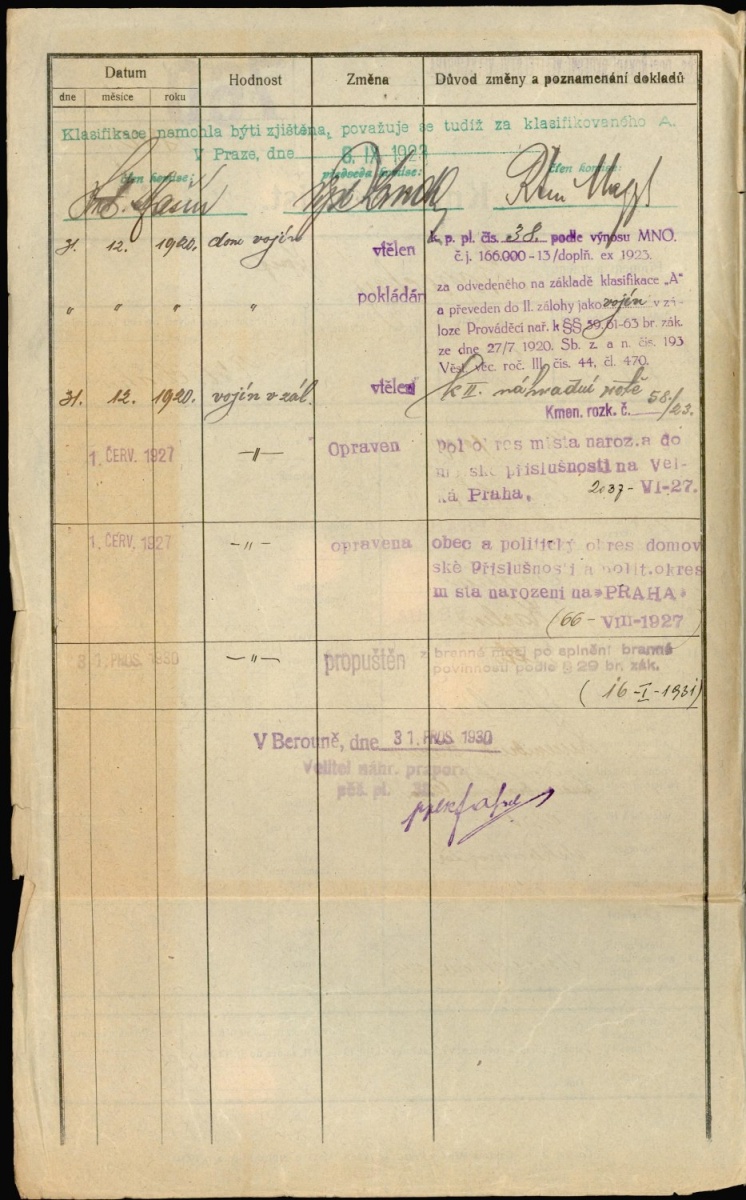 Datum
Hodnost
Změna
Důvod změny a poznamenání dokladů
dne
měsíce
roku
Klasifikace nemohla býti zjištěna, považuje se tudíž za klasifikovaného A.
V Praze, dne 8. IX 1923
člen komise:
předseda komise:
člen komise:
31. 12. 1920. dom vojín vtělen k p. pl. čís. 38. podle výnosu MNO.
č. j. 166.000-13/doplň. ex 1923.
" " " " pokládán za odvedeného na základě klasifikace „A"
a převeden do II. zálohy jako vojín v zá-
loze Prováděcí nař. k §§ 39, 61-63 br. zák.
ze dne 27/7. 1920. Sb. z. a n. čís. 193
Věst. věc. roč. III. čís. 44, čl. 470.
31. 12. 1920. vojín v zál. vtělen k II. náhradní rotě
Kmen. rozk. č. 58/23.
1. ČERV. 1927 —"— Opraven pol okres místa naroz. a do
movské příslušnosti na Vel-
ká Praha. VI-27.
1. ČERV. 1927 —"— opravena obec a politický okres domov
ské příslušnosti a polit. okres
místa narození na »PRAHA«
(66- VIII-1927
31. PROS. 1930 —"— propuštěn z branné moci po splnění branné
povinnosti podle § 29 br. zák.
(16-I-1931)
V Berouně, dne 31. PROS. 1930
Velitel náhr. praporu
pěš. pl. 38